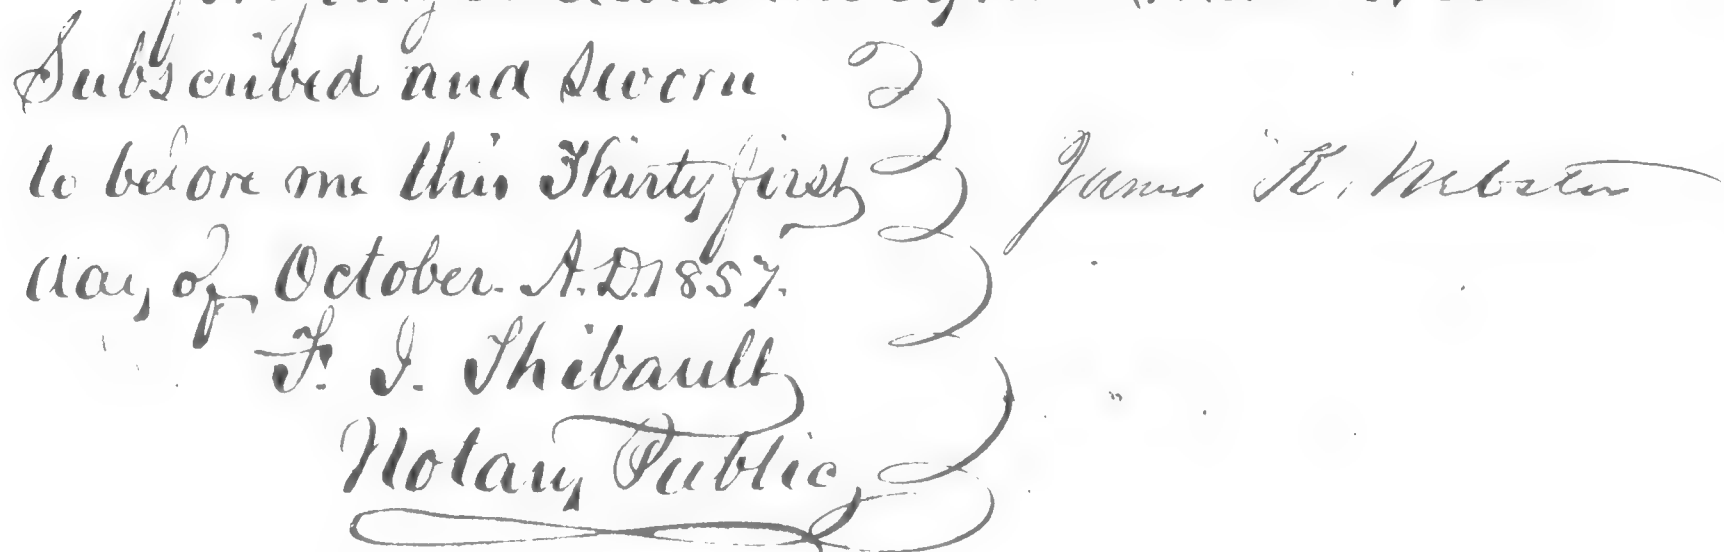 Subscribed and sworn
to before me this Thirty first
day of October. A.D. 1857.
F. I. Thibault
Notary Public
James K. Webster